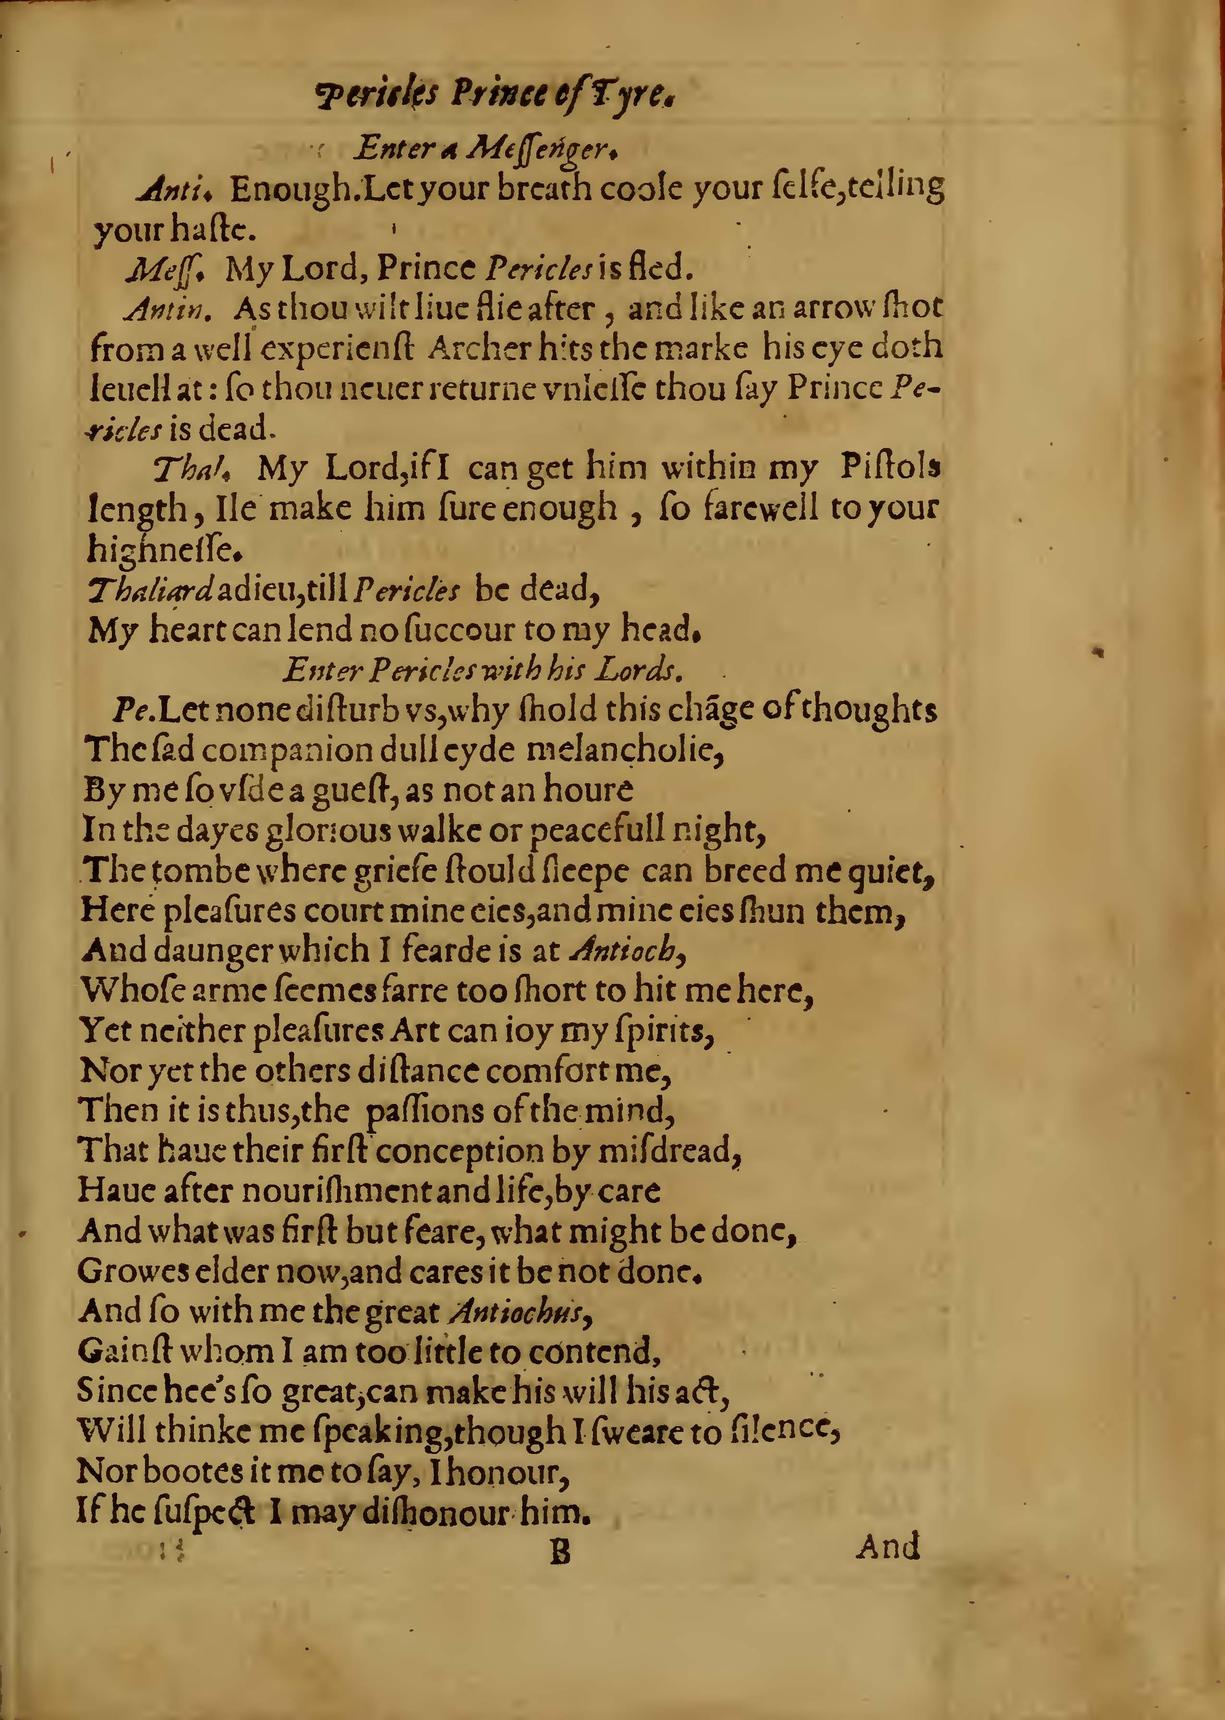 Pericles Prince of Tyre.
Enter a Meſſenger.
Anti. Enough. Let your breath coole your ſelfe, telling
your haſte.
Meſſ. My Lord, Prince Pericles is fled.
Antin. As thou wilt liue flie after, and like an arrow ſhot
from a well experienſt Archer hits the marke his eye doth
leuell at: ſo thou neuer returne vnleſſe thou ſay Prince Pe-
ricles is dead.
Thal. My Lord, if I can get him within my Piſtols
length, Ile make him ſure enough, ſo farewell to your
highneſſe.
Thaliard adieu, till Pericles be dead,
My heart can lend no ſuccour to my head.
Enter Pericles with his Lords.
Pe. Let none diſturb vs, why ſhold this chãge of thoughts
The ſad companion dull eyde melancholie,
By me ſo vſde a gueſt, as not an houre
In the dayes glorious walke or peacefull night,
The tombe where griefe ſtould ſleepe can breed me quiet,
Here pleaſures court mine eies, and mine eies ſhun them,
And daunger which I fearde is at Antioch,
Whoſe arme ſeemes farre too ſhort to hit me here,
Yet neither pleaſures Art can ioy my ſpirits,
Nor yet the others diſtance comfort me,
Then it is thus, the paſſions of the mind,
That haue their firſt conception by miſdread,
Haue after nouriſhment and life, by care
And what was firſt but feare, what might be done,
Growes elder now, and cares it be not done.
And ſo with me the great Antiochus,
Gainſt whom I am too little to contend,
Since hee's ſo great, can make his will his act,
Will thinke me ſpeaking, though I ſweare to ſilence,
Nor bootes it me to ſay, I honour,
If he ſuſpect I may diſhonour him.
B And